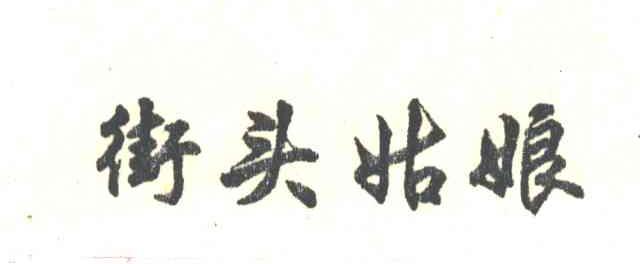 街头姑娘